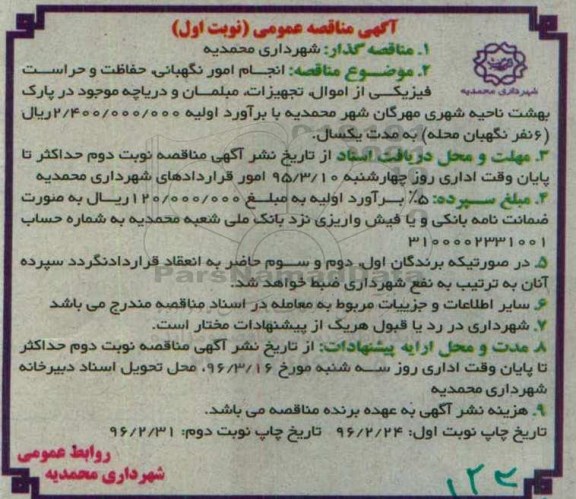 آگهی مناقصه عمومی (نوبت اول)
شهرداری محمدیه
۱. مناقصه گذار: شهرداری محمدیه
۲. موضوع مناقصه: انجام امور نگهبانی، حفاظت و حراست
فیزیکی از اموال، تجهیزات، مبلمان و دریاچه موجود در پارک
بهشت ناحیه شهری مهرگان شهر محمدیه با برآورد اولیه ۲/۴۰۰/۰۰۰/۰۰۰ریال
(۶نفر نگهبان محله) به مدت یکسال.
۳. مهلت و محل دریافت اسناد از تاریخ نشر آگهی مناقصه نوبت دوم حداکثر تا
پایان وقت اداری روز چهارشنبه ۹۵/۳/۱۰ امور قراردادهای شهرداری محمدیه
۴. مبلغ سپرده: ۵٪ برآورد اولیه به مبلغ ۱۲۰/۰۰۰/۰۰۰ریال به صورت
ضمانت نامه بانکی و یا فیش واریزی نزد بانک ملی شعبه محمدیه به شماره حساب
۳۱۰۰۰۰۲۳۳۱۰۰۱
۵. در صورتیکه برندگان اول، دوم و سوم حاضر به انعقاد قراردادنگردد سپرده
آنان به ترتیب به نفع شهرداری ضبط خواهد شد.
ParsNamadData
۶. سایر اطلاعات و جزییات مربوط به معامله در اسناد مناقصه مندرج می باشد
۷. شهرداری در رد یا قبول هریک از پیشنهادات مختار است.
۸. مدت و محل ارایه پیشنهادات: از تاریخ نشر آگهی مناقصه نوبت دوم حداکثر
تا پایان وقت اداری روز سه شنبه مورخ ۹۶/۳/۱۶، محل تحویل اسناد دبیرخانه
شهرداری محمدیه
۹. هزینه نشر آگهی به عهده برنده مناقصه می باشد.
تاریخ چاپ نوبت اول: ۹۶/۲/۲۴ تاریخ چاپ نوبت دوم: ۹۶/۲/۳۱
روابط عمومی
شهرداری محمدیه